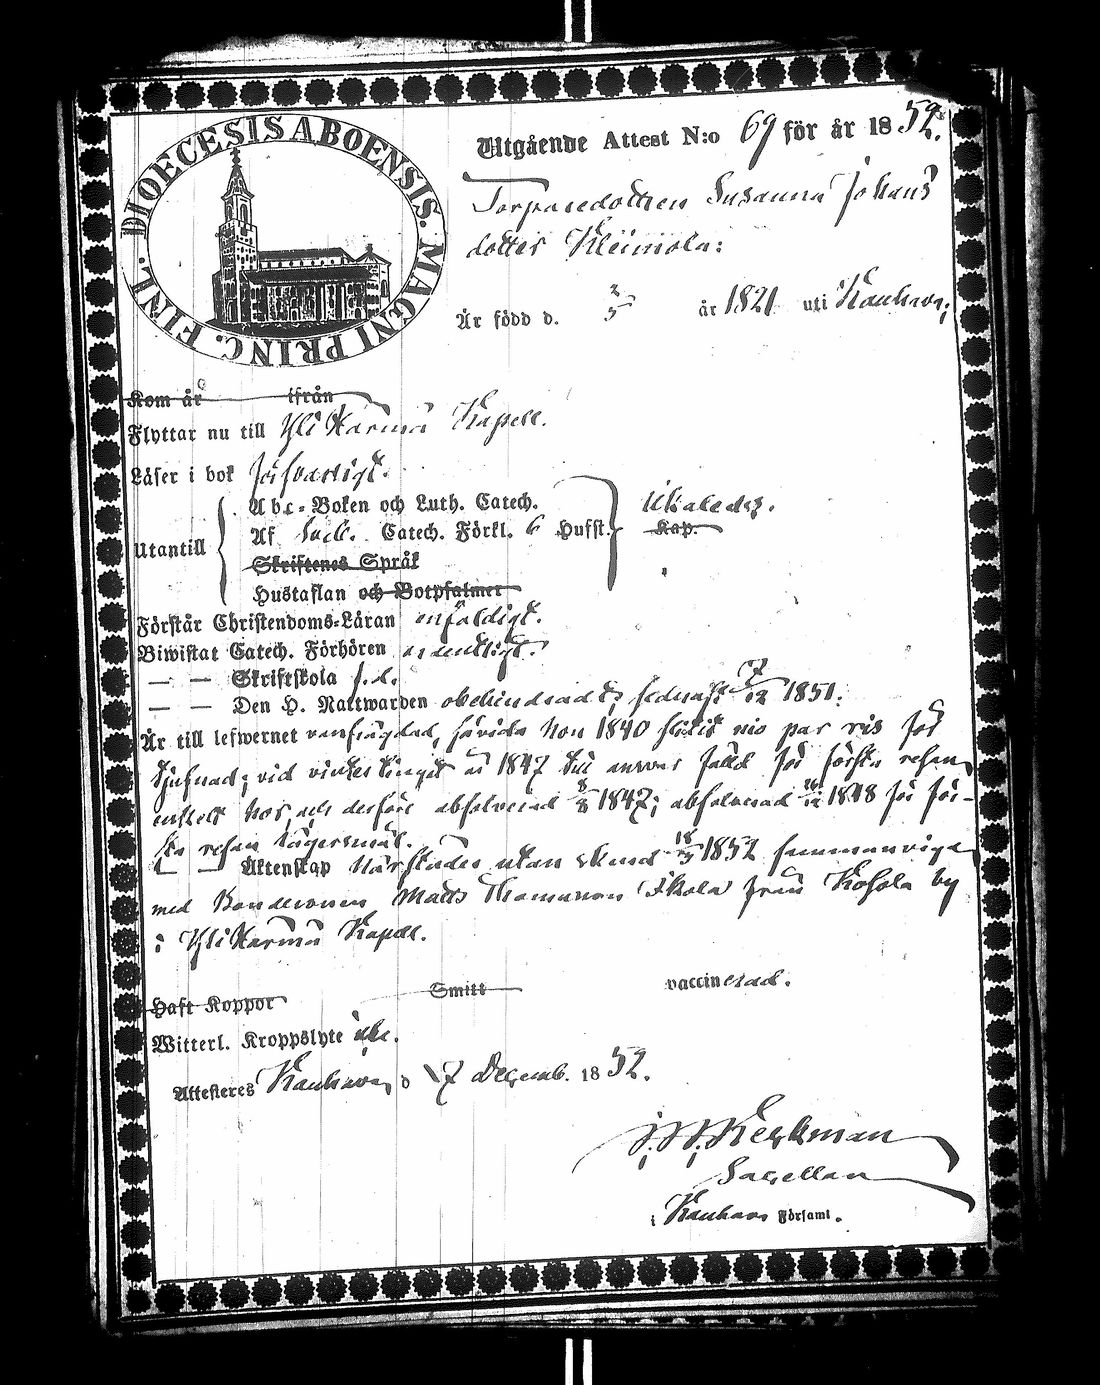 DIOECESIS ABOENSIS. MAGNI PRINC. FINL.
Utgående Attest N:o 69 för år 1852.
Torparedottren Susanna Johans
dotter Kleimola:
Är född d. 3/5 år 1821 uti Kauhava;
Kom år ifrån
Flyttar nu till Yli Härmä Kapell.
Läser i bok försvarligt.
Abc-Boken och Luth. Catech. Utaledes.
Utantill Af Sveb. Catech. Förkl. 6 Hufst. Kap.
Skriftenes Språk
Hustaflan och Botpsalmer
Förstår Christendoms-Läran enfaldigt.
Biwistat Catech. Förhören ordentligt.
— — Skriftskola f.d.
— — Den H. Nattwarden obehindrad, sednast 7/12 1851.
Är till lefwernet vanfrägdad, såvida hon 1840 slitit nio par ris för
tjufnad; vid vintertinget år 1847 till answar fälld för första resan
enkelt hor, och derföre absolverad 8/8 1847; absolverad 26/12 1848 för för-
sta resan lägersmål.
— — Äktenskap härstädes utan skend 18/7 1852 sammanvigd
med Bondesonen Matts Thomasson Ekola från Kosola by
i Yli Härmä Kapell.
Haft Koppor Smitt vaccinerad.
Witterl. Kroppslyte icke.
Attesteres Kauhava d 7 Decemb. 1852.
Kerkman
Sacellan
i Kauhava Församl.